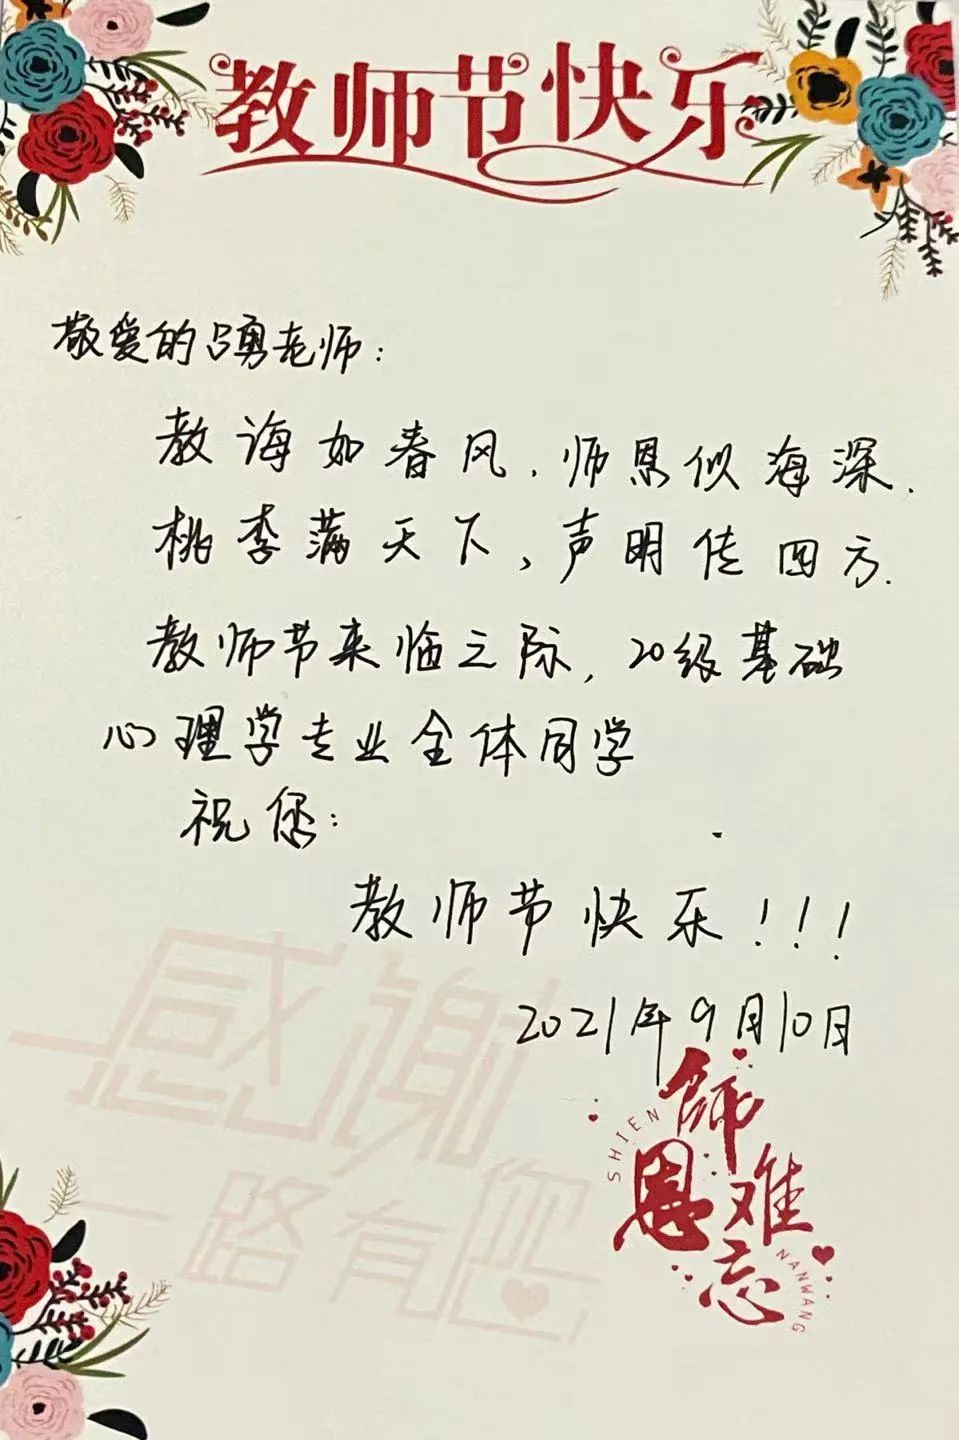 教师节快乐
敬爱的吕勇老师：
教诲如春风，师恩似海深．
桃李满天下，声明传四方．
教师节来临之际，20级基础
心理学专业全体同学
祝您：
教师节快乐！！！
2021年9月10日
感谢
一路有您
SHIEN
師恩难忘
NANWANG